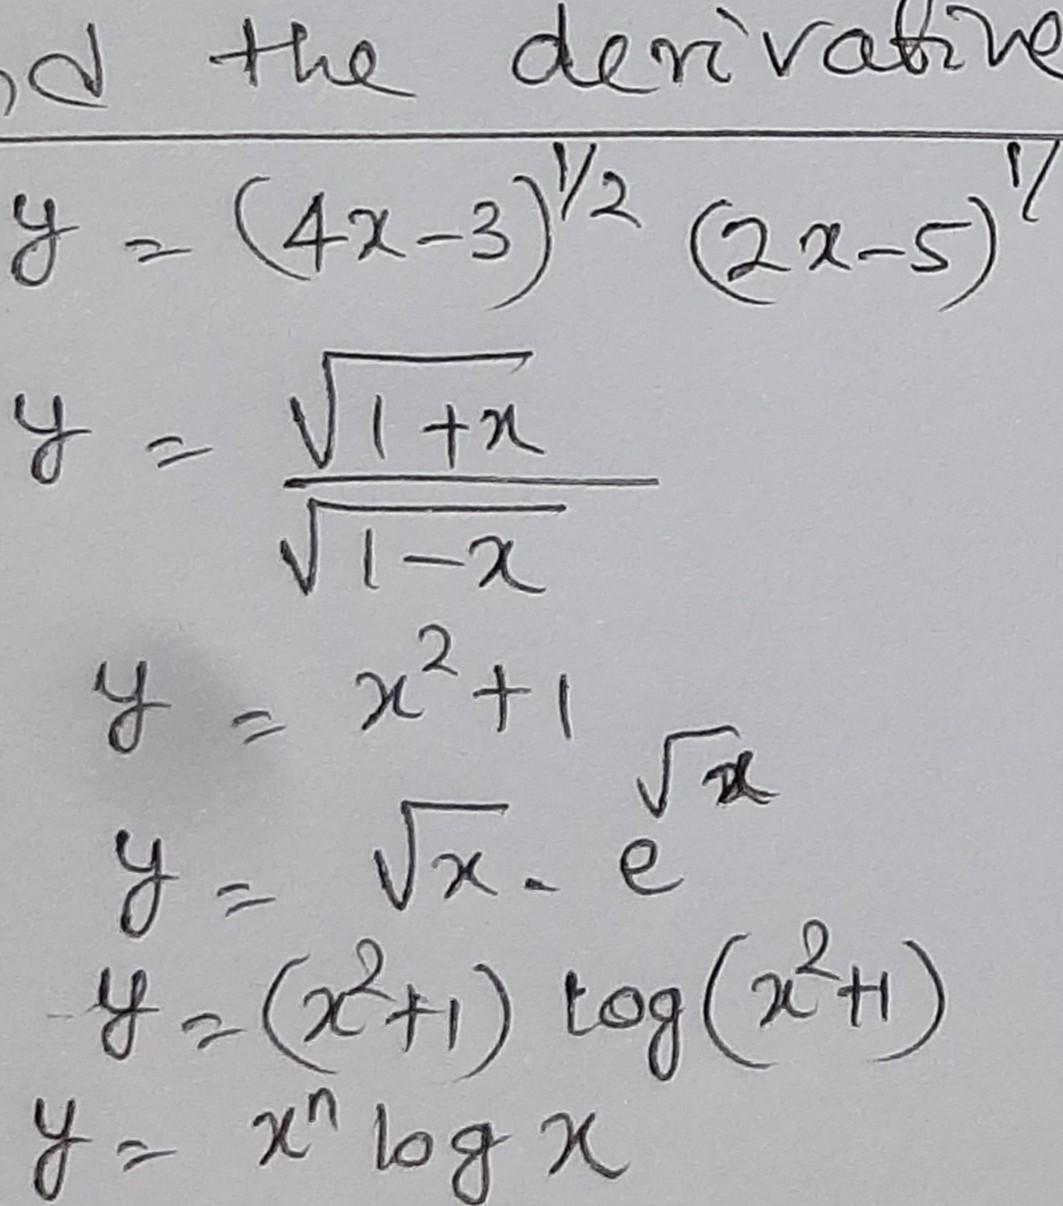 d the derivative
y = (4x-3)^1/2 (2x-5)^1/
y = √1+x / √1-x
y = x²+1
y = √x . e^√x
y = (x²+1) log(x²+1)
y = xⁿ log x